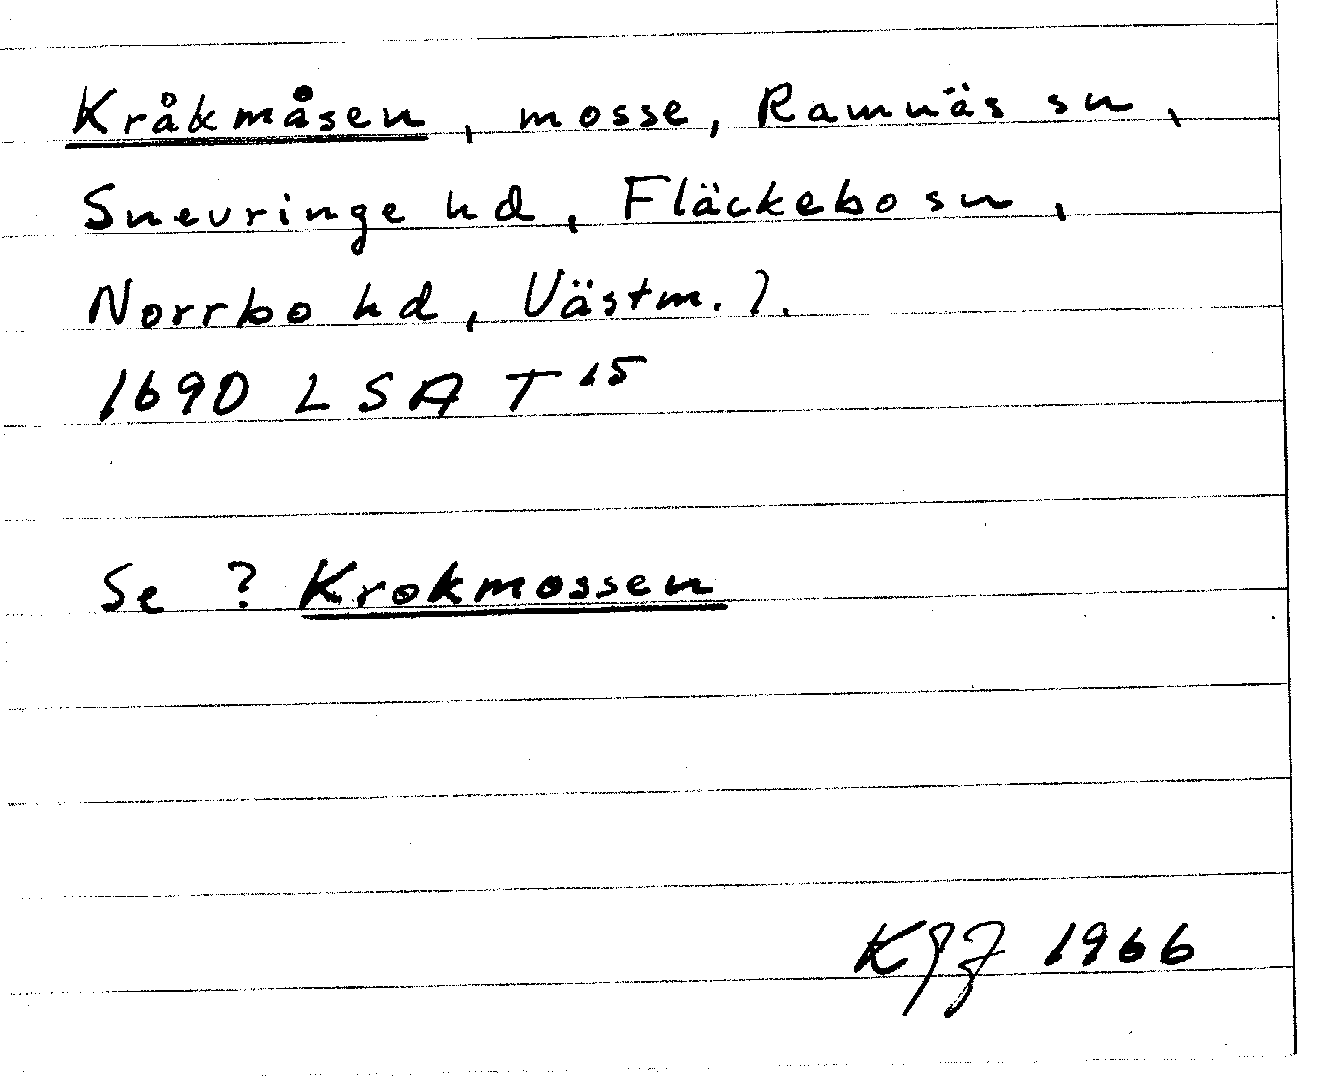 Kråkmåsen, mosse, Ramnäs sn,
Snevringe hd, Fläckebo sn,
Norrbo hd, Västm. l.
1690 LSA T 15
Se ? Krokmossen
1966